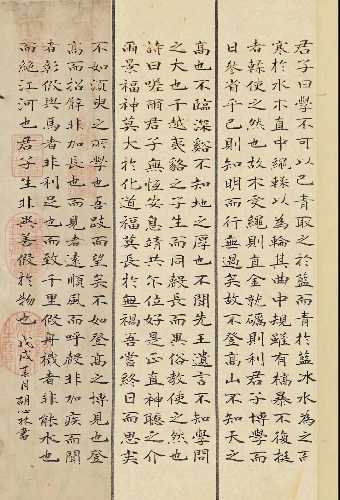 君子曰學不可以已青取之於藍而青於藍冰水為之而
寒於水木直中繩輮以為輪其曲中規雖有槁暴不復挺
者輮使之然也故木受繩則直金就礪則利君子博學而
日參省乎己則知明而行無過矣故不登高山不知天之
高也不臨深谿不知地之厚也不聞先王遺言不知學問
之大也干越夷貉之子生而同聲長而異俗教使之然也
詩曰嗟爾君子無恆安息靖共尒位好是正直神聽之介
爾景福神莫大於化道福莫長於無禍吾嘗終日而思矣
不如須臾之所學也吾跂而望矣不如登高之博見也登
高而招臂非加長也而見者遠順風而呼聲非加疾而聞
者彰假輿馬者非利足也而致千里假舟楫者非能水也
而絕江河也君子生非異善假於物也 戊戌 月胡心 書